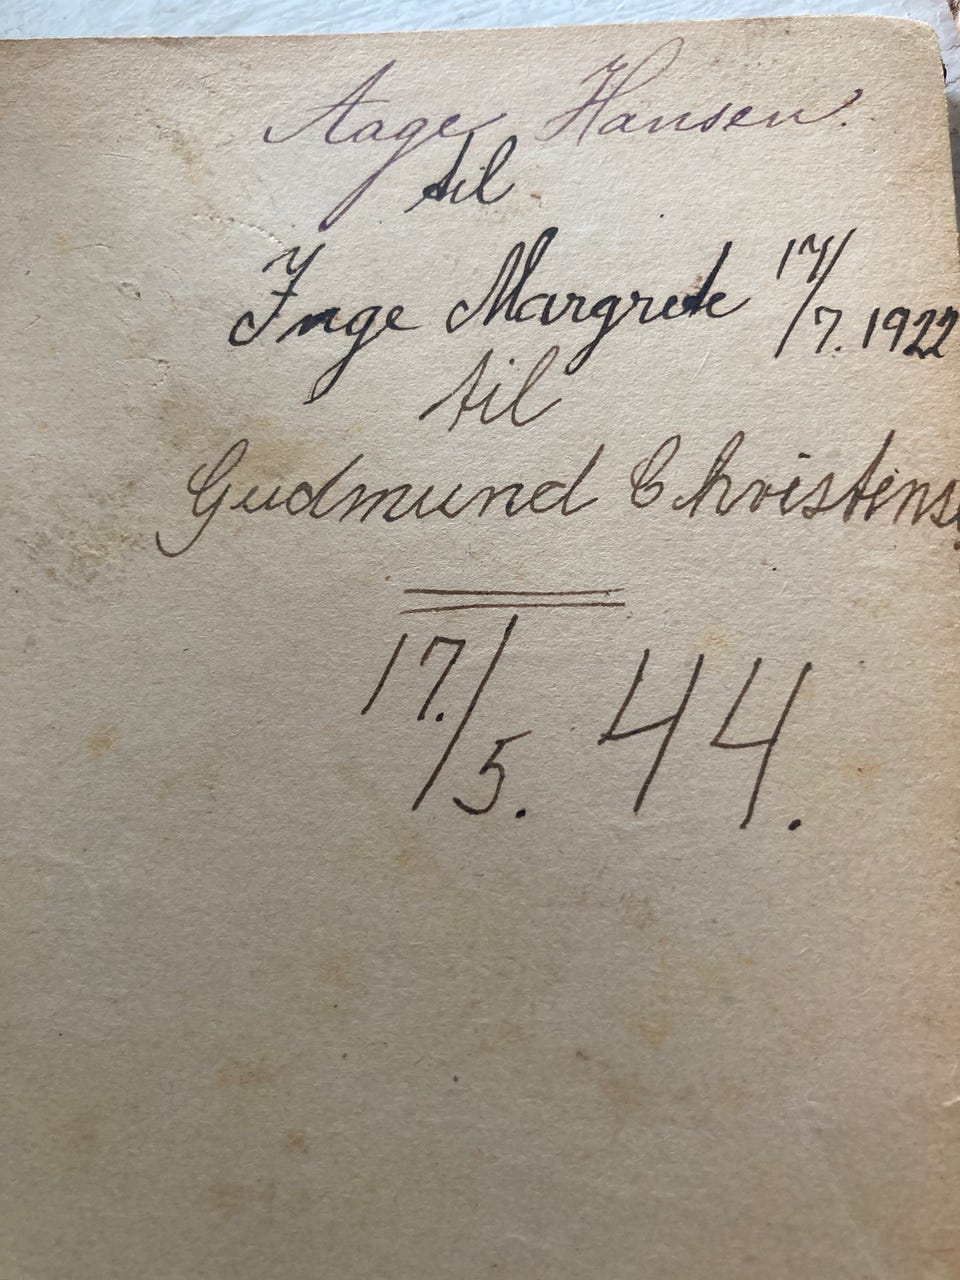 Aage Hansen.
til
Inge Margrete 17/7. 1922
til
Gudmund Christens
17./5. 44.